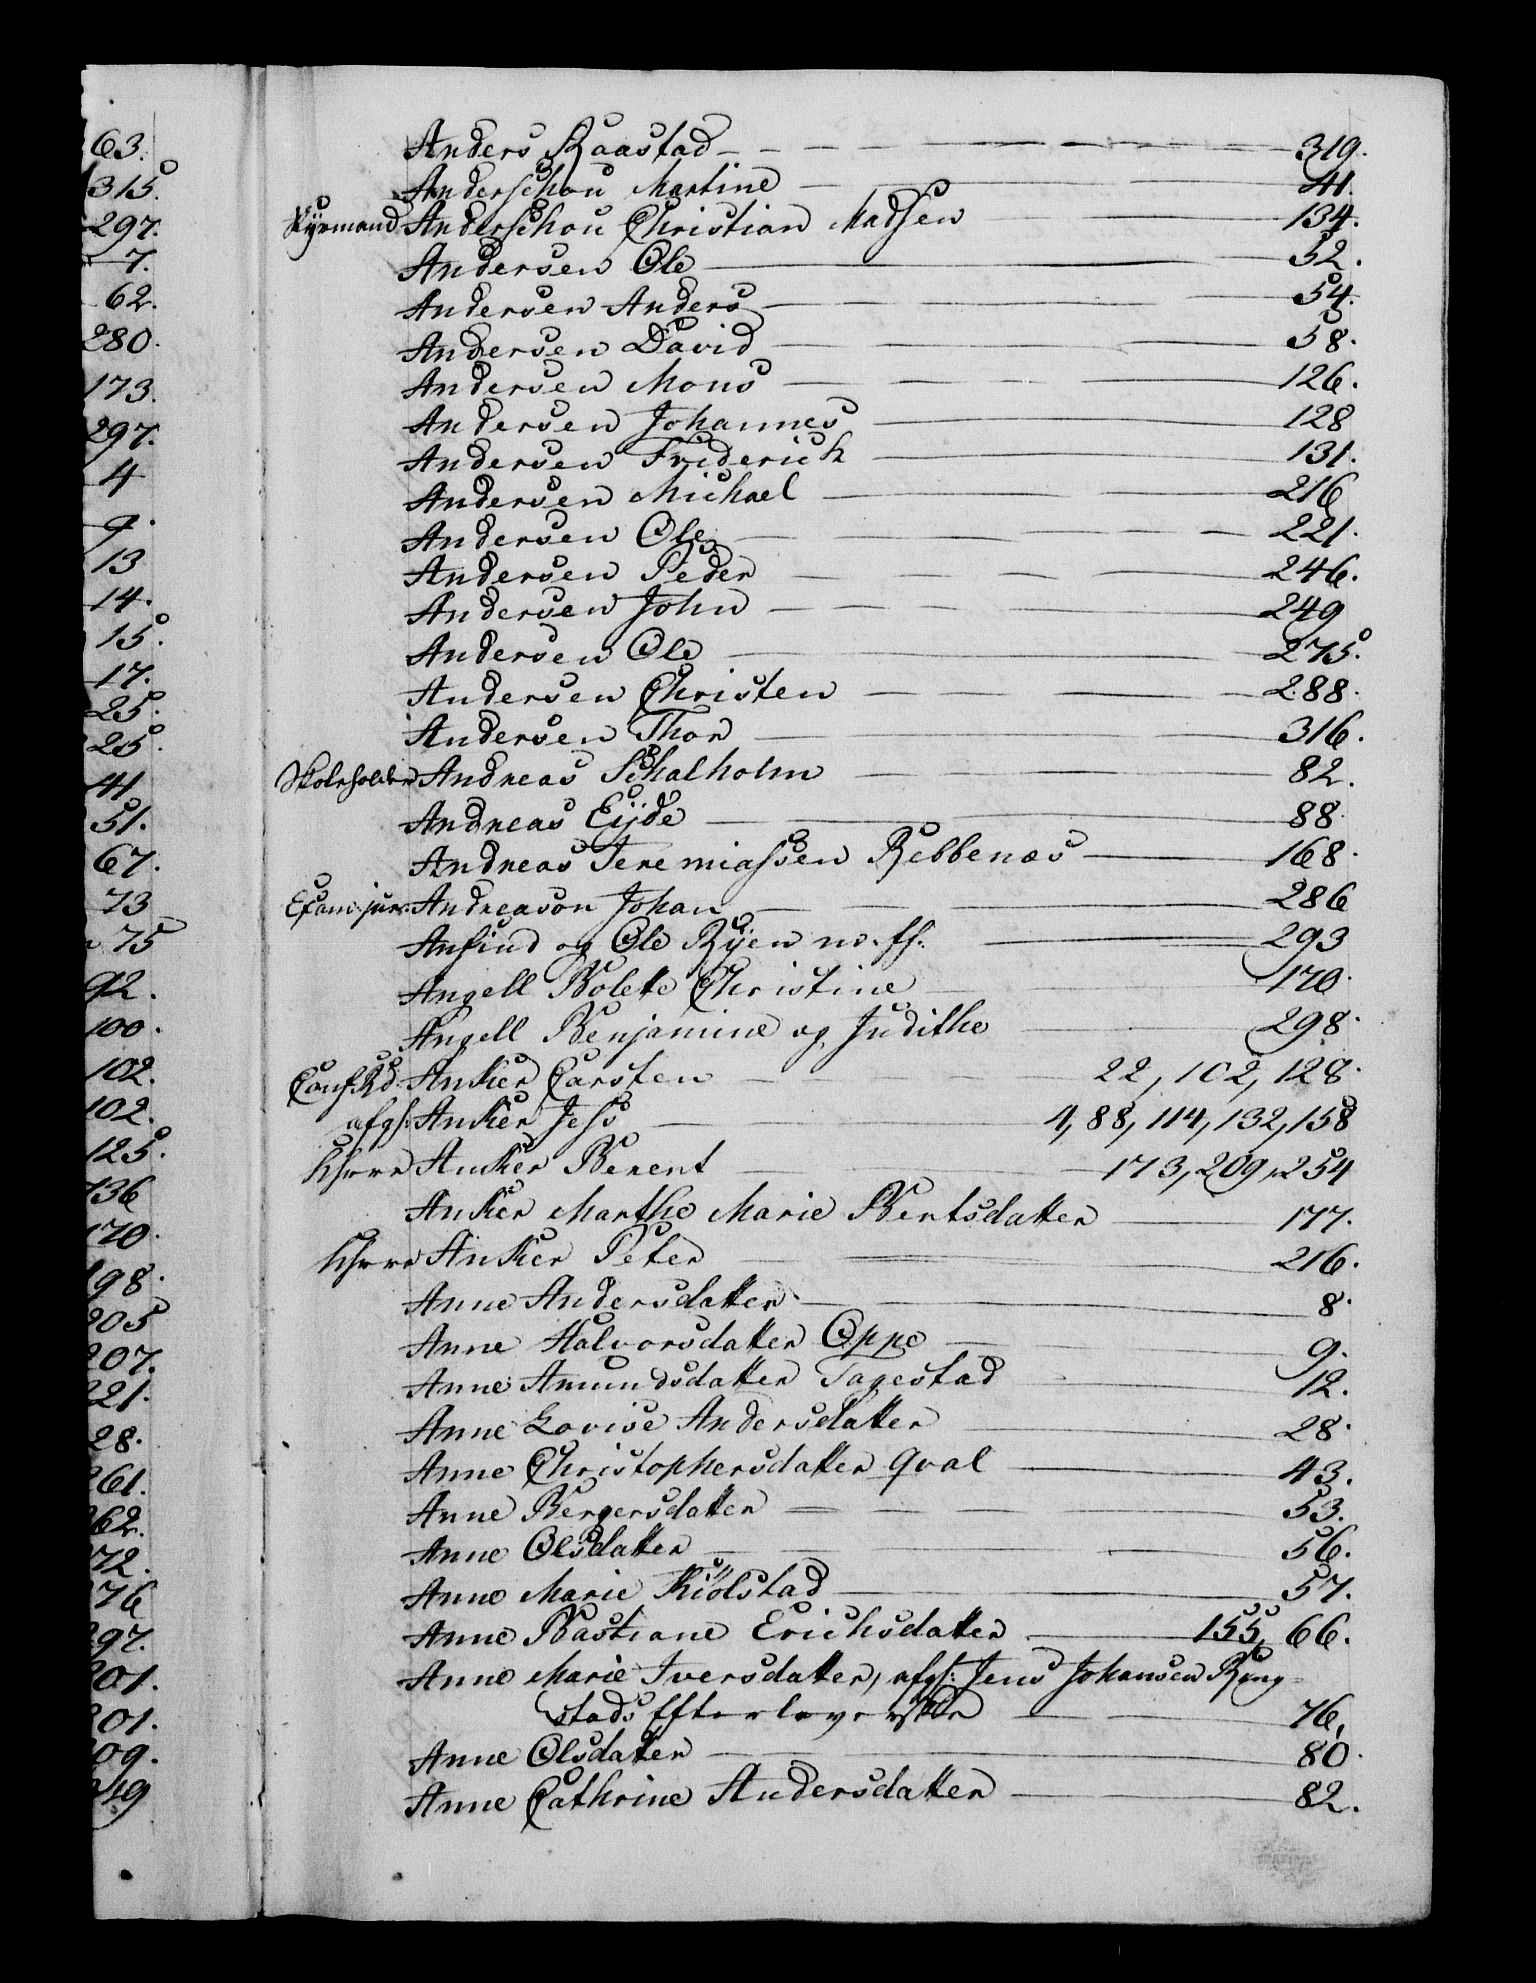 63.
315.
297.
7.
62.
280.
173.
297.
4
9.
13
14.
15.
17.
25.
25.
41
51.
67.
73
75
92.
100.
102.
102.
125.
136
170.
198.
205
207.
221.
28.
261.
262.
272.
276
297.
301.
301.
309.
319
Anders Raastad 319.
Anderschou Martine 41.
Styrmand Anderschou Christian Madsen 134.
Andersen Ole 52.
Andersen Anders 54.
Andersen David 58.
Andersen Mons 126.
Andersen Johannes 128
Andersen Friderich 131.
Andersen Michael 216
Andersen Ole 221.
Andersen Peder 246.
Andersen John 249
Andersen Ole 275.
Andersen Christen 288.
Andersen Thor 316.
Skoleholder Andreas Schalholm 82.
Andreas Eijde 88
Andreas Jeremiassen Rebbenæs 168.
Exam: jur: Andreason Johan 286
Anfind og Ole Rÿen m. fl. 293
Angell Bolette Christine 170.
Angell Benjamine og Judithe 298.
Conf.Rd. Anker Carsten 22, 102, 128.
afgl: Anker Jess 4, 88, 114, 132, 158
Khrr Anker Berent 173, 209, 254
Anker Marthe Marie Berntsdatter 177.
Khrr Anker Peter 216.
Anne Andersdatter 8.
Anne Halvorsdatter Oppe 9.
Anne Amundsdatter Fagestad 12.
Anne Lovise Andersdatter 28.
Anne Christophersdatter Qval 43.
Anne Bergersdatter 53.
Anne Olsdatter 56.
Anne Marie Kiölstad 57.
Anne Bastiane Erichsdatter 155, 66.
Anne Marie Iversdatter, afgl: Jens Johansen Ring-
stads Efterleverske 76,
Anne Olsdatter 80.
Anne Cathrine Andersdatter 82.